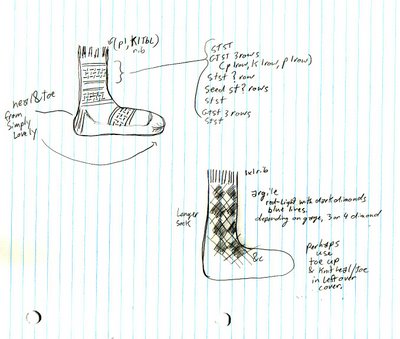 (p1, K1TBL)
rib
StSt
GTST 3 rows
(p1row, K1row, p1row)
Stst ? row
Seed st ? rows
St st
Gtst 3 rows
StSt
heel & toe
from
Simply
Lovely
1x1 rib
argile
red-light with dark dimonds
blue lines.
depending on gauge, 3 or 4 dimond
Longer
Sock
&c
perhaps
use
toe up
& Knit heel/toe
in leftover
cover.